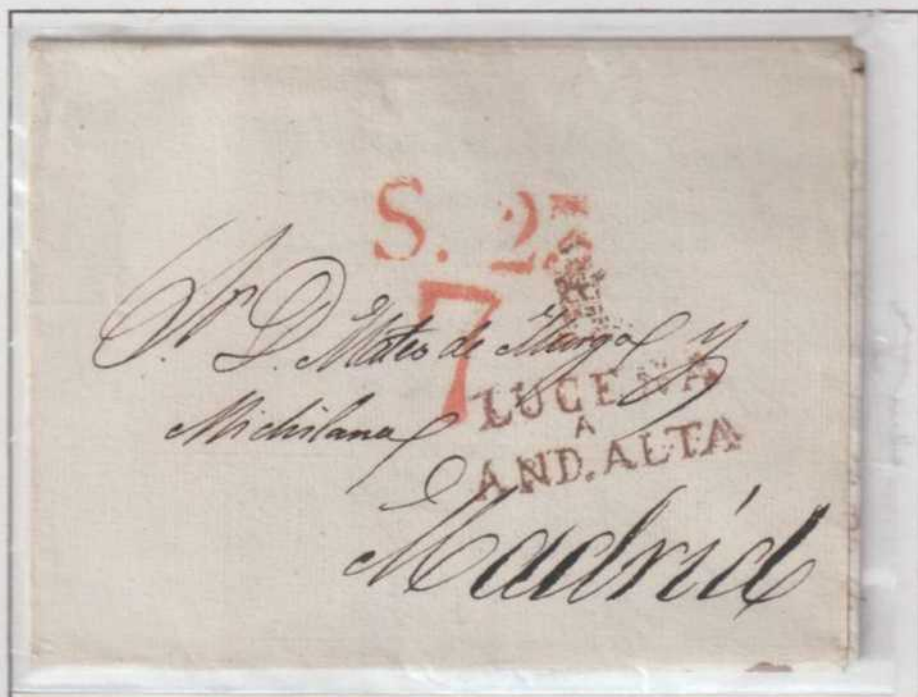 S. 2.
7
Sr. D. Mateo de Murga y
Michilana
LUCENA
A
AND. ALTA
Madrid